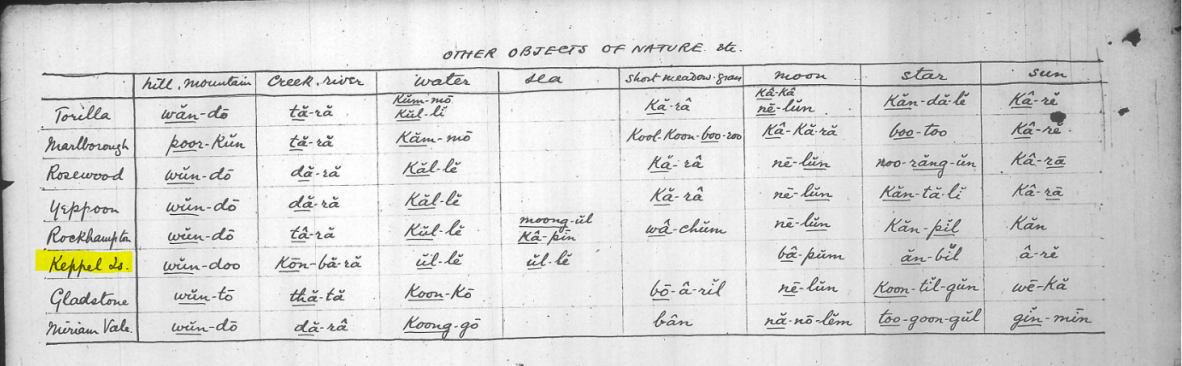 OTHER OBJECTS OF NATURE etc.
hill, mountain Creek, river water sea short meadow-grass moon star sun
Torilla wăn-dō tă-ră Kŭm-mō Kŭl-lĭ Kă-râ Kâ-Kâ nē-lŭn Kăn-dă-lĕ Kâ-rĕ
Marlborough poor-Kŭn tă-ră Kăm-mō Kool-Koon-boo-roo Kâ-Kă-ră boo-too Kâ-rĕ
Rosewood wŭn-dō dă-ră Kăl-lĕ Kă-râ nē-lŭn noo-răng-ŭn Kâ-rā
Yeppoon wŭn-dō dă-ră Kăl-lĕ Kă-râ nē-lŭn Kăn-tă-lĭ Kâ-rā
Rockhampton wŭn-dō tâ-ră Kŭl-lĕ moong-ŭl Kâ-pĭn wâ-chŭm nē-lŭn Kăn-pĭl Kăn
Keppel Is. wŭn-doo Kōn-bă-ră ŭl-lĕ ŭl-lĕ bâ-pŭm ăn-bĭl â-rĕ
Gladstone wŭn-tō thă-tă Koon-Kō bō-â-rĭl nē-lŭn Koon-tĭl-gŭn wē-Kă
Miriam Vale. wŭn-dō dă-râ Koong-gō bân nă-nō-lĕm too-goon-gŭl gĭn-mĭn